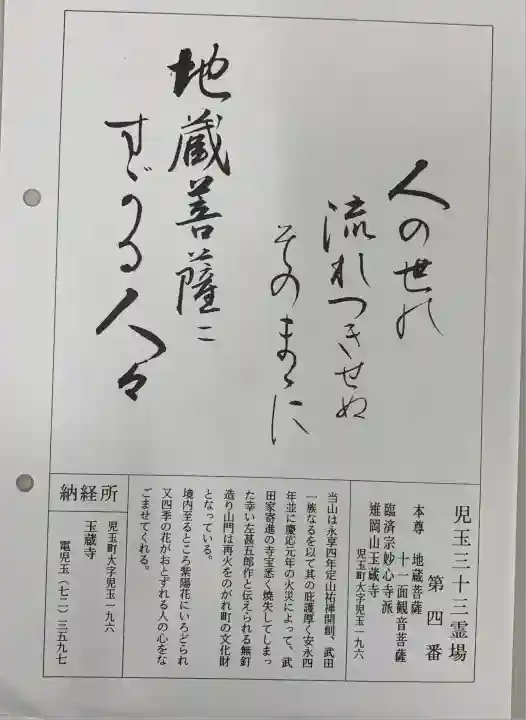 人の世の
流れつきせぬ
そのまゝに
地蔵菩薩に
すがる人々
児玉三十三霊場
第四番
本尊 地蔵菩薩
十一面観音菩薩
臨済宗妙心寺派
雉岡山玉蔵寺
児玉町大字児玉一九六
当山は永享四年定山祐禅開創、武田
一族なるを以て其の庇護厚く安永四
年並に慶応元年の火災によって、武
田家寄進の寺宝悉く焼失してしまっ
た幸い左甚五郎作と伝えられる無釘
造り山門は再火をのがれ町の文化財
となっている。
境内至るところ紫陽花にいろどられ
又四季の花がおとずれる人の心をな
ごませてくれる。
納経所
児玉町大字児玉一九六
玉蔵寺
電児玉(七二)三五九七